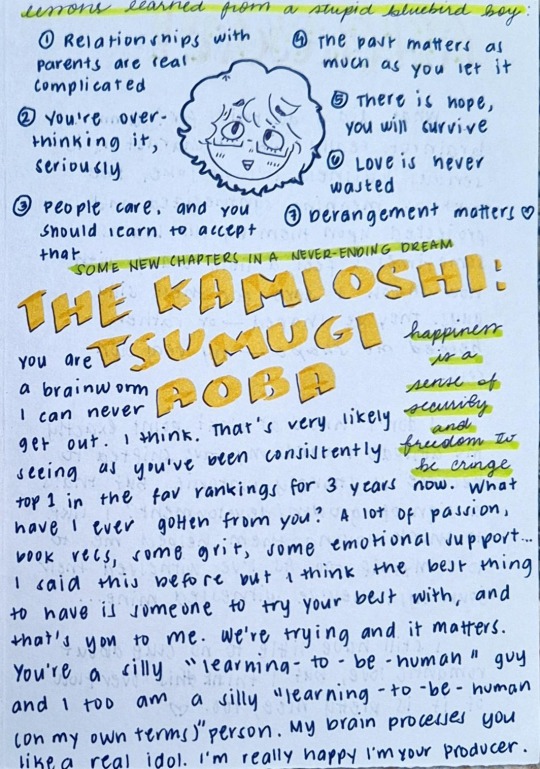 lessons learned from a stupid bluebird boy:
① Relationships with
parents are real
complicated
② You're over-
thinking it,
seriously
③ People care, and you
should learn to accept
that
④ The past matters as
much as you let it
⑤ There is hope,
you will survive
⑥ Love is never
wasted
⑦ Derangement matters ♡
SOME NEW CHAPTERS IN A NEVER-ENDING DREAM
THE KAMIOSHI:
TSUMUGI
AOBA
happiness
is a
sense of
security
and
freedom to
be cringe
you are
a brainworm
I can never
get out. I think. That's very likely
seeing as you've been consistently
top 1 in the fav rankings for 3 years now. What
have I ever gotten from you? A lot of passion,
book recs, some grit, some emotional support...
I said this before but I think the best thing
to have is someone to try your best with, and
that's you to me. We're trying and it matters.
You're a silly "learning-to-be-human" guy
and I too am a silly "learning-to-be-human
(on my own terms)" person. My brain processes you
like a real idol. I'm really happy I'm your producer.